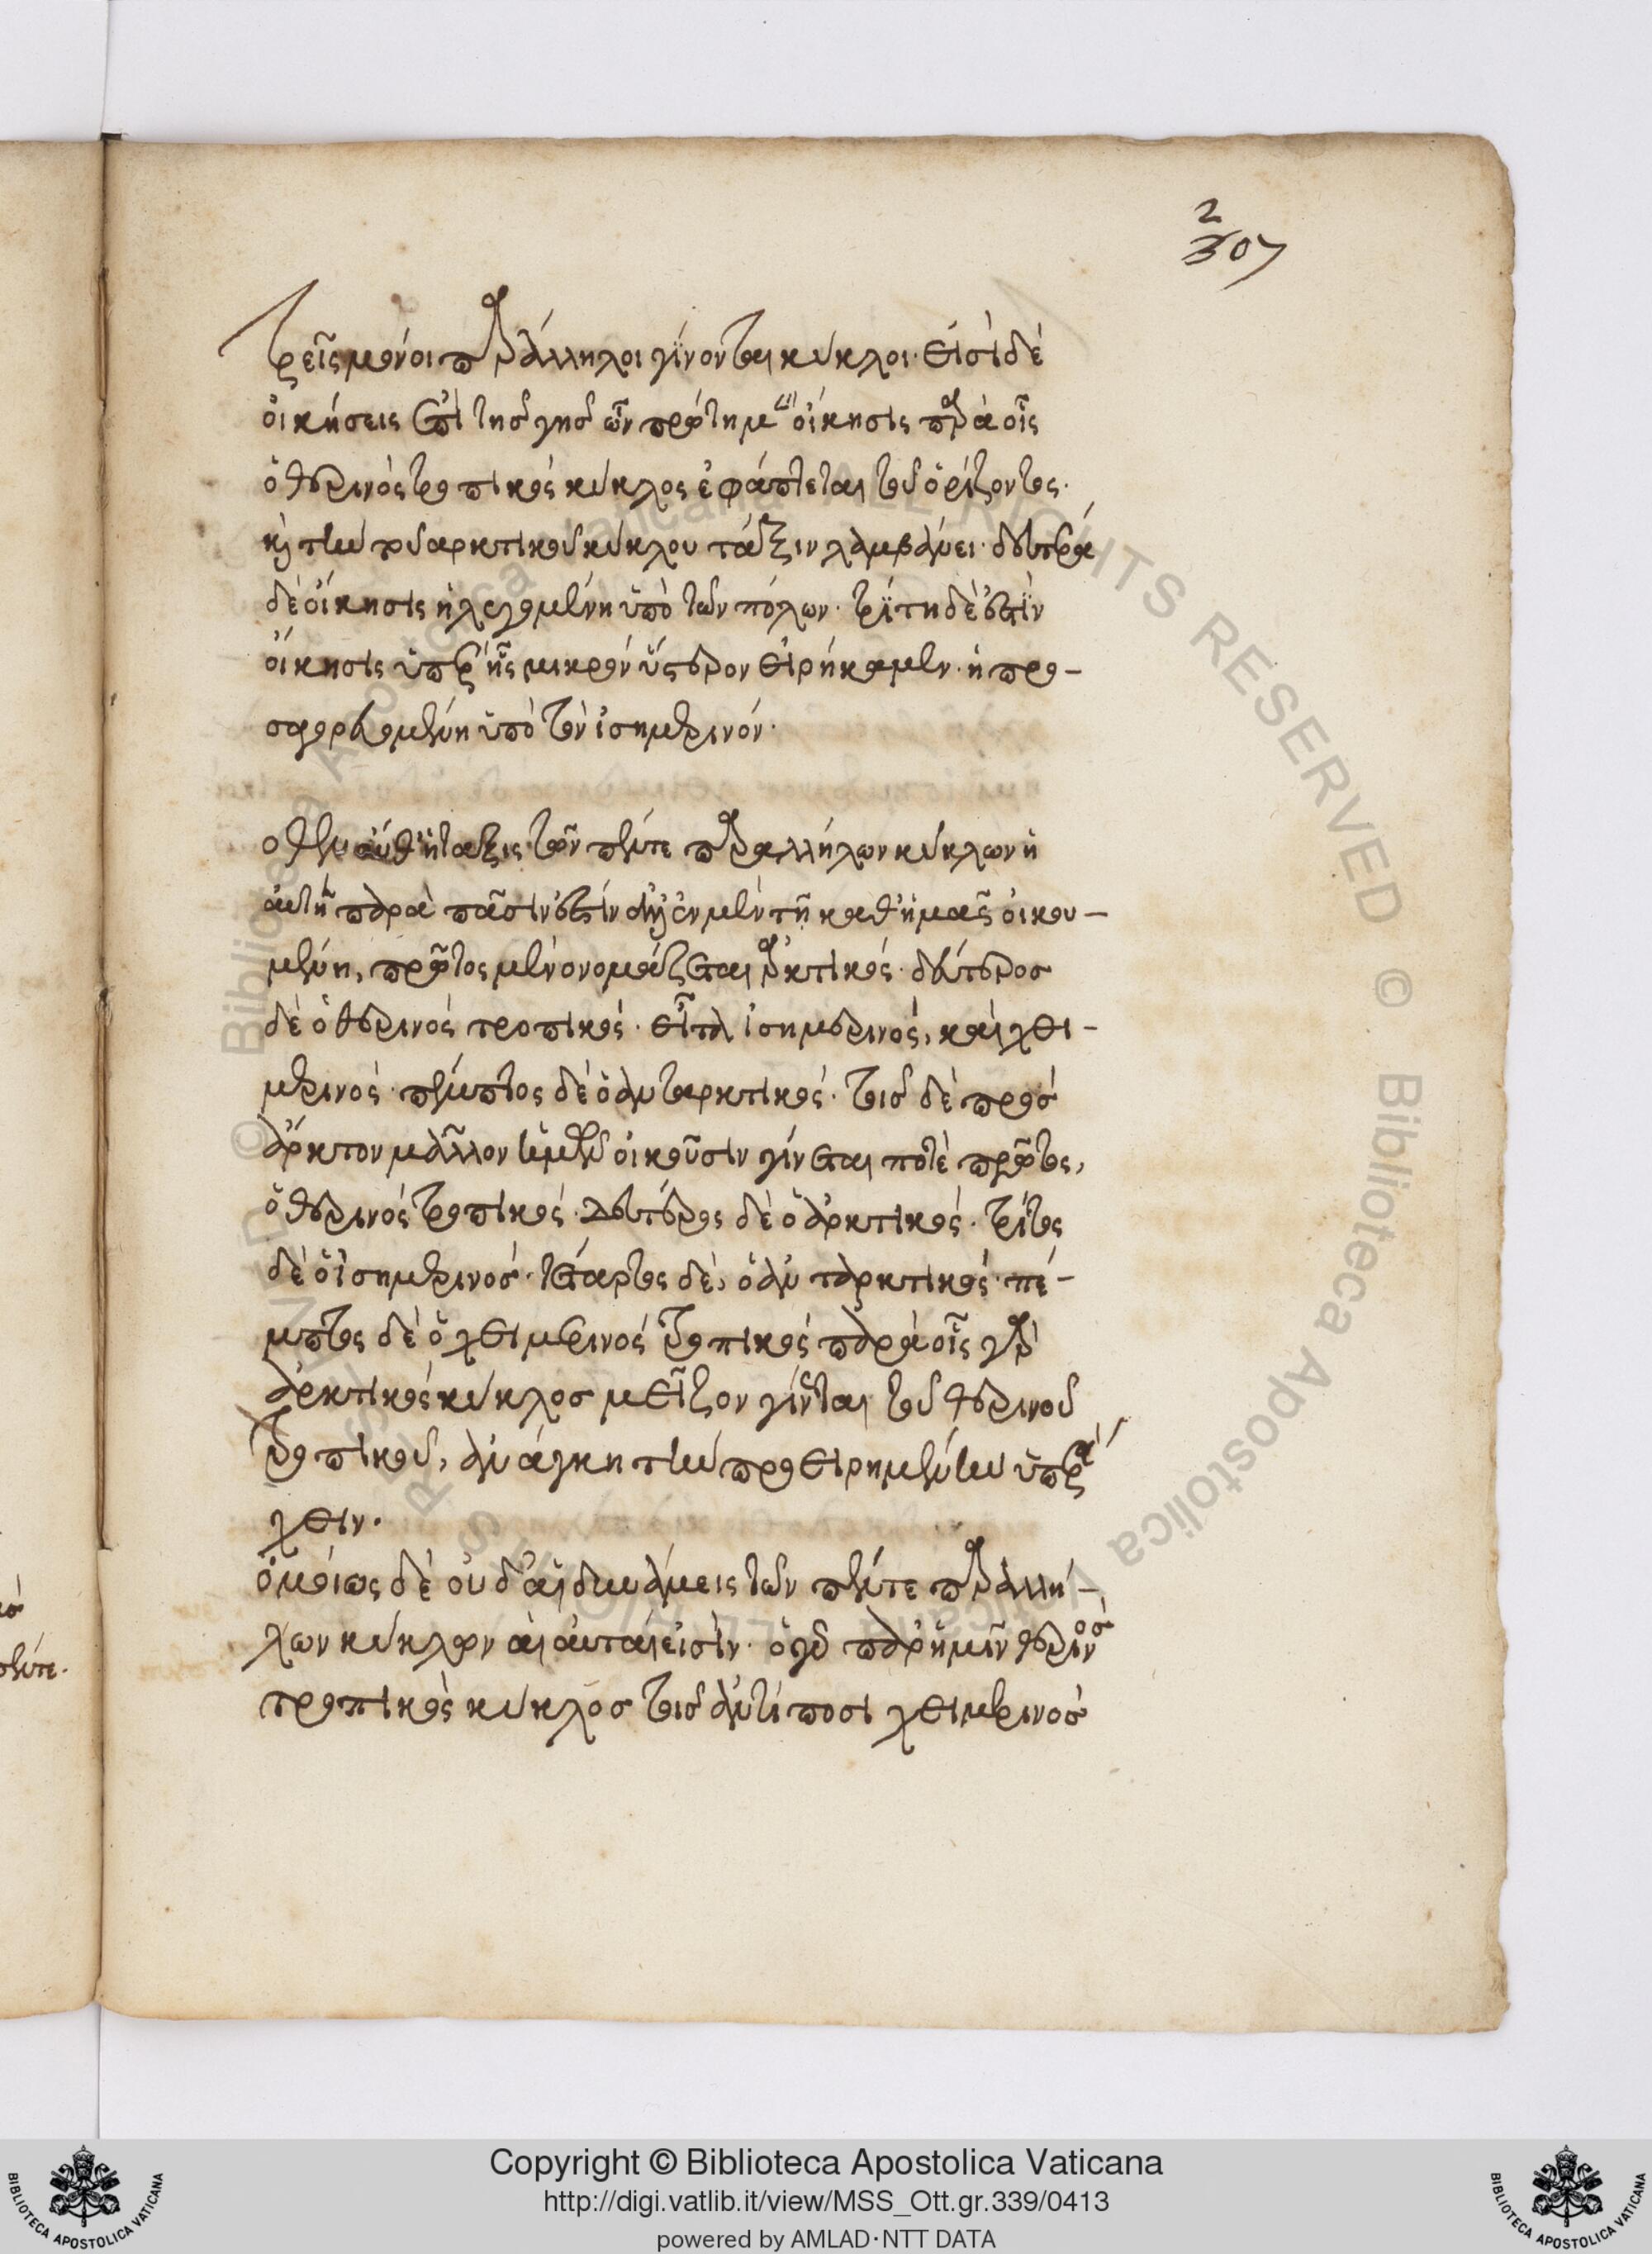 2
307
τρεῖς μόνοι παράλληλοι γίνονται κύκλοι· εἰσὶ δὲ
οἰκήσεις ἐπὶ τῆς γῆς ὧν πρώτη μὲν οἴκησις παρὰ οἷς
ὁ θερινὸς τροπικὸς κύκλος ἐφάπτεται τοῦ ὁρίζοντος·
καὶ τὴν τοῦ ἀρκτικοῦ κύκλου τάξιν λαμβάνει· δευτέρα
δὲ οἴκησις ἡ λεγομένη ὑπὸ τῶν πόλων· τρίτη δὲ ἐστὶν
οἴκησις ὑπὲρ ἧς μικρὸν ὕστερον εἰρήκαμεν· ἡ προ-
σαγορευομένη ὑπὸ τὸν ἰσημερινόν·
ὅθεν οὐθ' ἡ τάξις τῶν πέντε παραλλήλων κύκλων ἡ
αὐτὴ παρὰ πᾶσιν ἐστὶν ἀλλ' ἐν μὲν τῇ καθ' ἡμᾶς οἰκου-
μένη, πρῶτος μὲν ὀνομάζεται ἀρκτικός· δεύτερος
δὲ ὁ θερινὸς τροπικός· εἶτα ἰσημερινὸς, καὶ χει-
μερινός· πέμπτος δὲ ὁ ἀνταρκτικός· τοῖς δὲ πρὸς
ἄρκτον μᾶλλον ἡμῶν οἰκοῦσιν γίνεται ποτὲ πρῶτος,
ὁ θερινὸς τροπικός· δεύτερος δὲ ὁ ἀρκτικός· τρίτος
δὲ ὁ ἰσημερινός· τέταρτος δὲ, ὁ ἀνταρκτικός· πέ-
μπτος δὲ ὁ χειμερινὸς τροπικὸς παρὰ οἷς γὰρ
ἀρκτικὸς κύκλος μεῖζον γίνεται τοῦ θερινοῦ
τροπικοῦ, ἀνάγκη τὴν προειρημένην ὑπάρ
χειν·
ὁμοίως δὲ οὐδ' αἱ δυνάμεις τῶν πέντε παραλλή-
λων κύκλων αἱ αὐταί εἰσὶν· ὁ γὰρ παρ' ἡμῖν θερινὸς
τροπικὸς κύκλος τοῖς ἀντίποσι χειμερινὸς
Copyright © Biblioteca Apostolica Vaticana
http://digi.vatlib.it/view/MSS_Ott.gr.339/0413
powered by AMLAD·NTT DATA